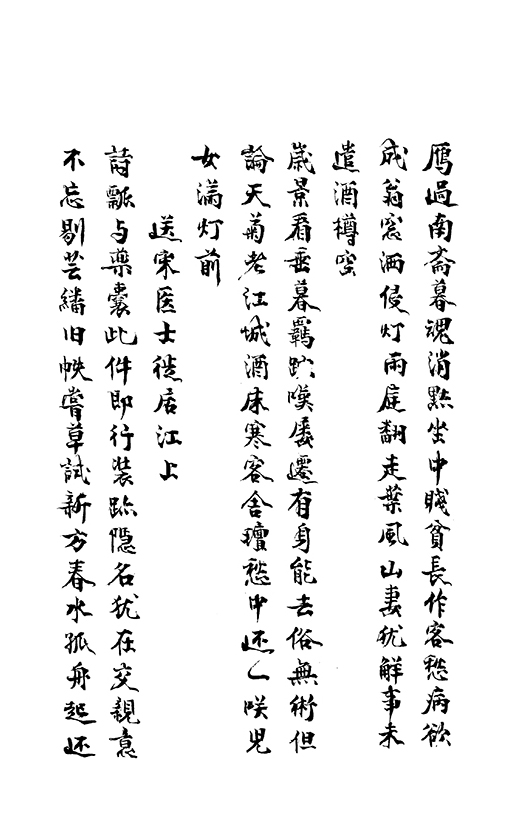 鴈過南斎暮魂消點坐中賤貧長作客愁病欲
成翁窓洒侵灯雨庭翻走葉風山妻犹解事未
遣酒樽空
歲景看垂暮羇跡嘆屡遷有身能去俗無術但
論天菊老江城酒床寒客舍氊愁中还一咲児
女满灯前
送宋医士徙居江上
詩瓢与藥囊此件即行装跡隐名犹在交親意
不忘剔芸繙旧帙嘗草試新方春水孤舟起还